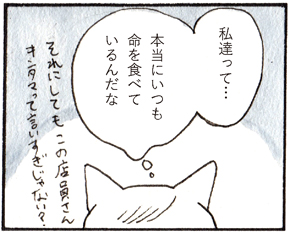 私達って…
本当にいつも
命を食べて
いるんだな
それにしてもこの店員さん
キンタマって言いすぎじゃない?